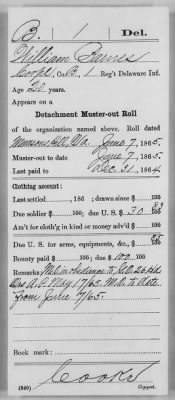 B. | 1 | Del.
William Barnes
Corpl, Co. B, 1 Reg't Delaware Inf.
Age 20 years.
Appears on a
Detachment Muster-out Roll
of the organization named above. Roll dated
Munsons Hill, Va. June 7, 1865.
Muster-out to date June 7, 1865.
Last paid to Dec. 31, 1864
Clothing account:
Last settled , 186 ; drawn since $ 100
Due soldier $ 100; due U. S. $ 30 83/100
Am't for cloth'g in kind or money adv'd $ 100
Due U. S. for arms, equipments, &c., $ 100
Bounty paid $ 100; due $ 100 100
Remarks M.O. in obedience to G.O. 26 Hd
Qrs A.P. May 17/65. M.O. to date
from June 7/65.
Book mark:
Cooke
(349) Copyist.